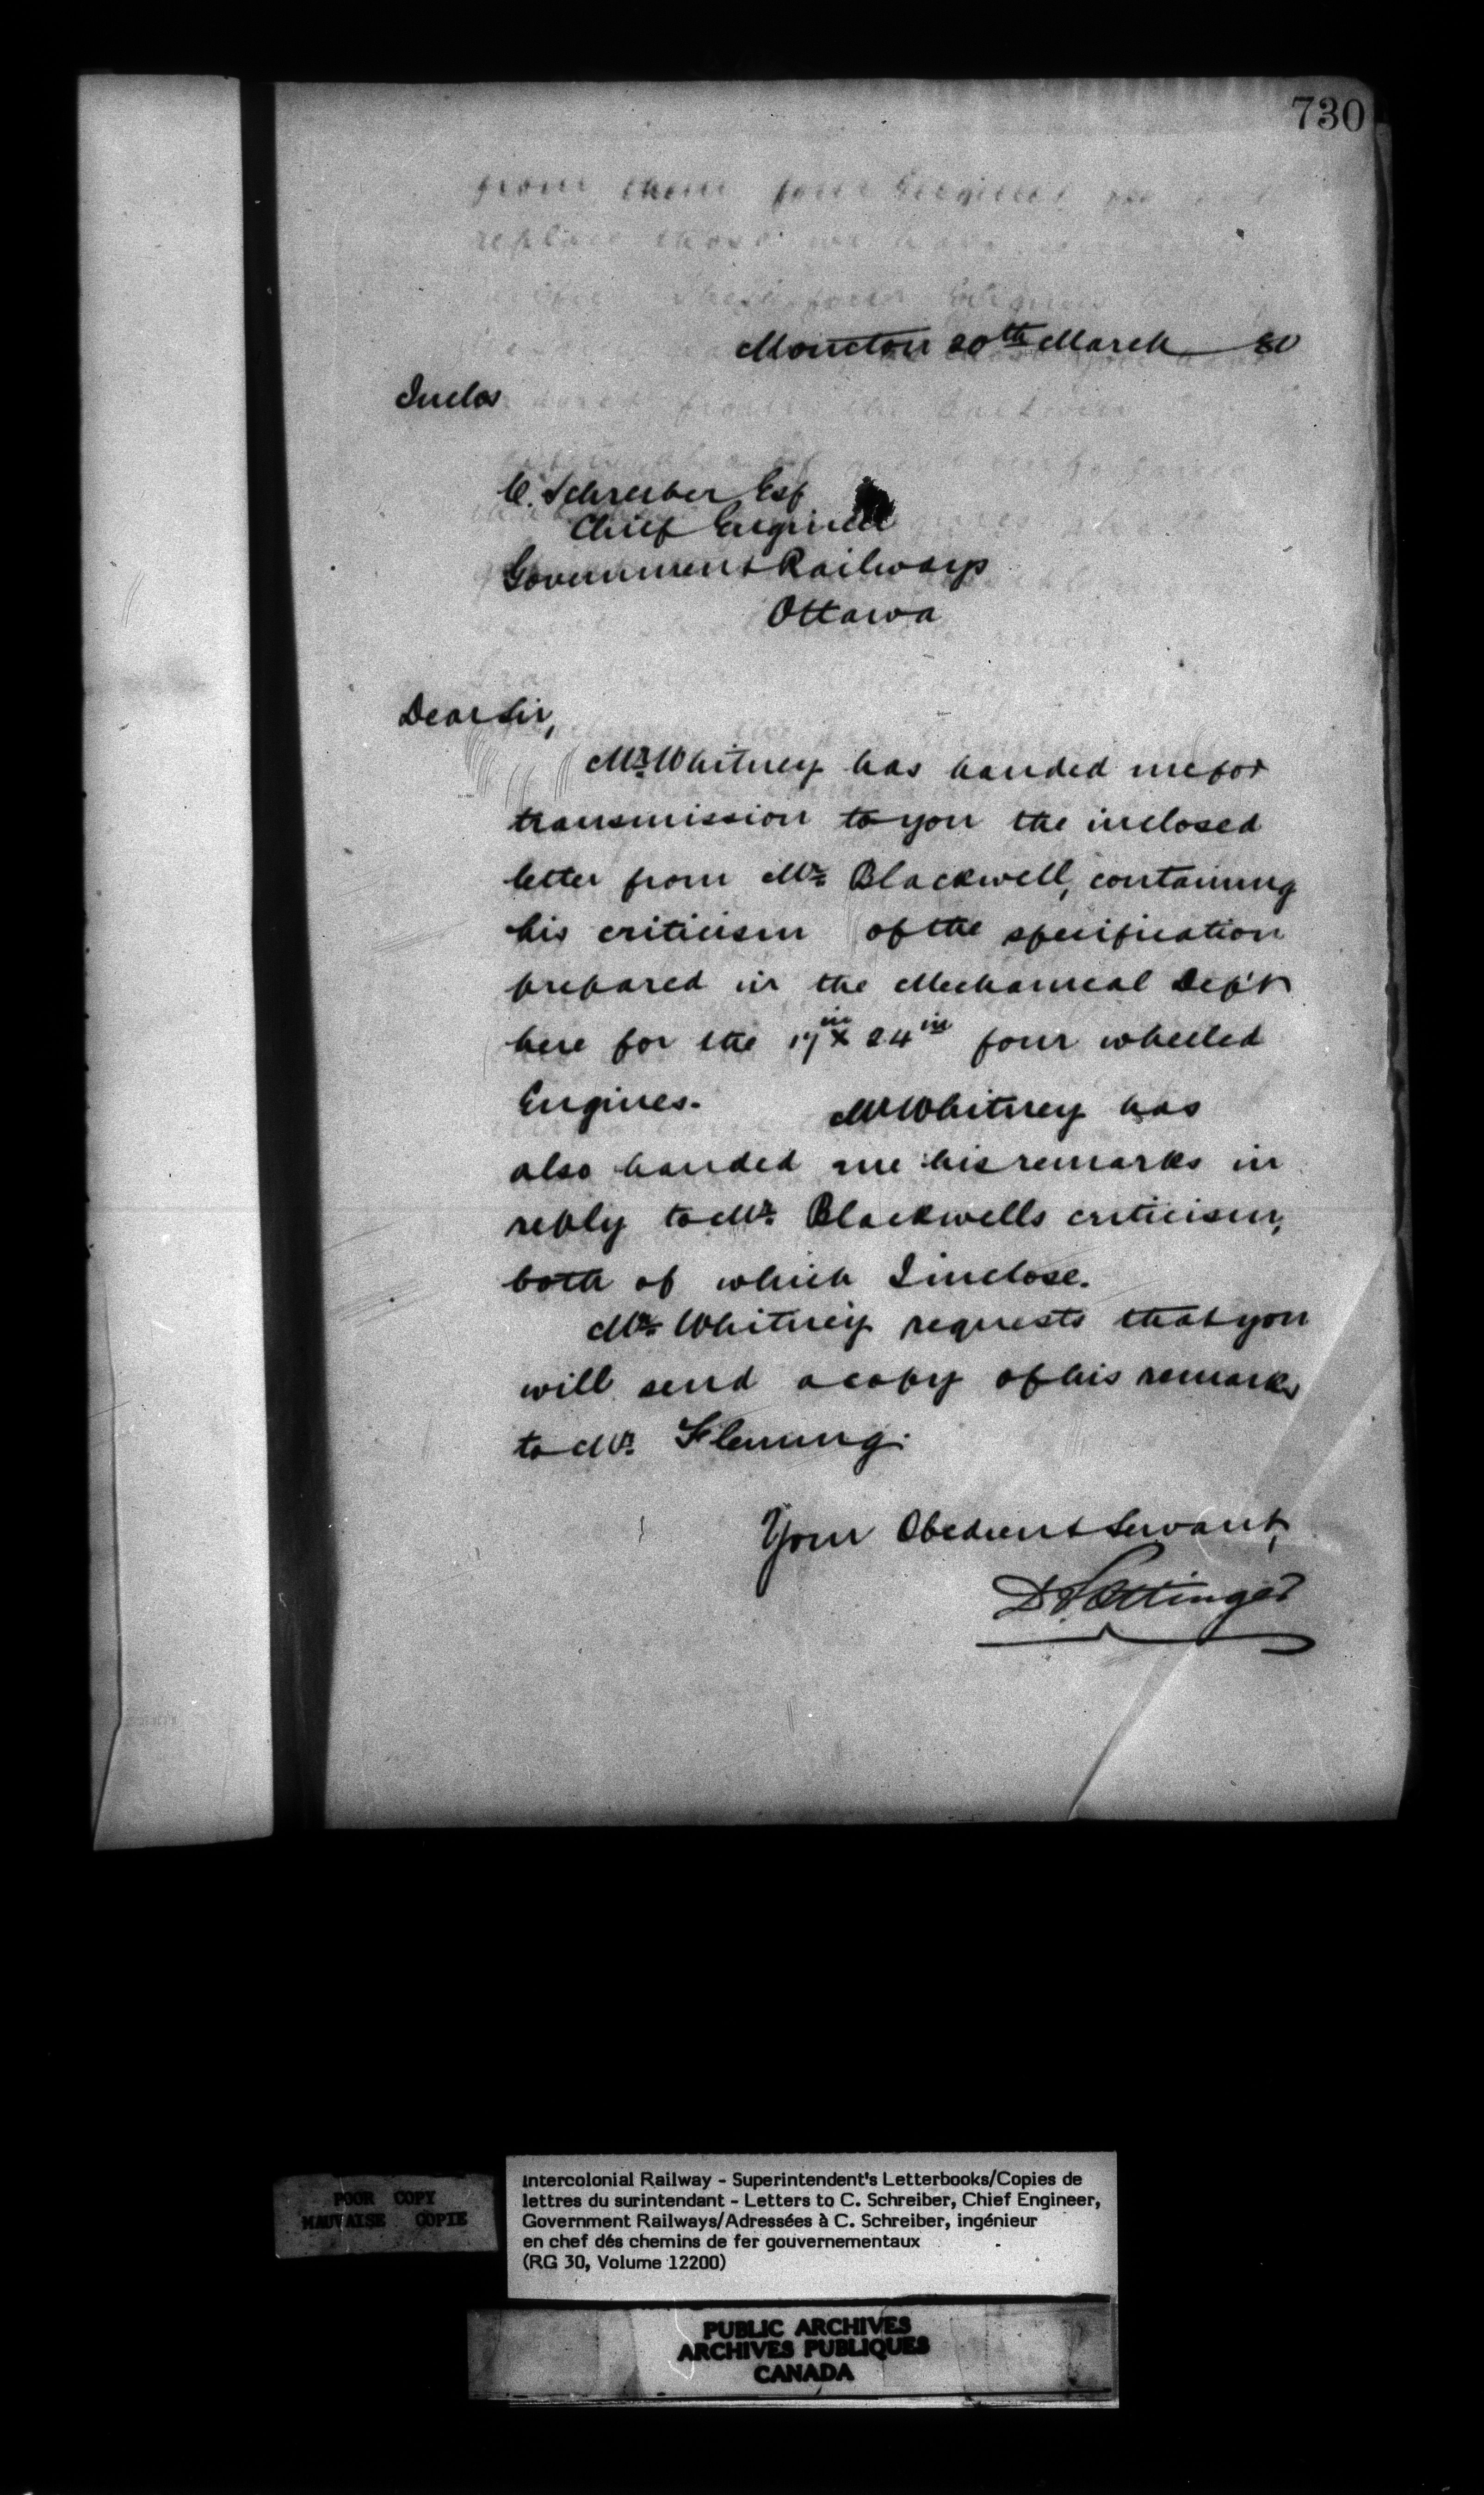 730
Moncton 20th March 80
Inclos
C. Schreiber Esq
Chief Engineer
Government Railways
Ottawa
Dear Sir,
Mr Whitney has handed me for
transmission to you the inclosed
letter from Mr Blackwell, containing
his criticism of the specification
prepared in the Mechanical Dep't
here for the 17in x 24in four wheeled
Engines. Mr Whitney has
also handed me his remarks in
reply to Mr Blackwells criticism,
both of which I inclose.
Mr Whitney requests that you
will send a copy of his remarks
to Mr Fleming.
Your Obedient Servant,
D. Pottinger
POOR COPY
MAUVAISE COPIE
Intercolonial Railway - Superintendent's Letterbooks/Copies de
lettres du surintendant - Letters to C. Schreiber, Chief Engineer,
Government Railways/Adressées à C. Schreiber, ingénieur
en chef dés chemins de fer gouvernementaux
(RG 30, Volume 12200)
PUBLIC ARCHIVES
ARCHIVES PUBLIQUES
CANADA